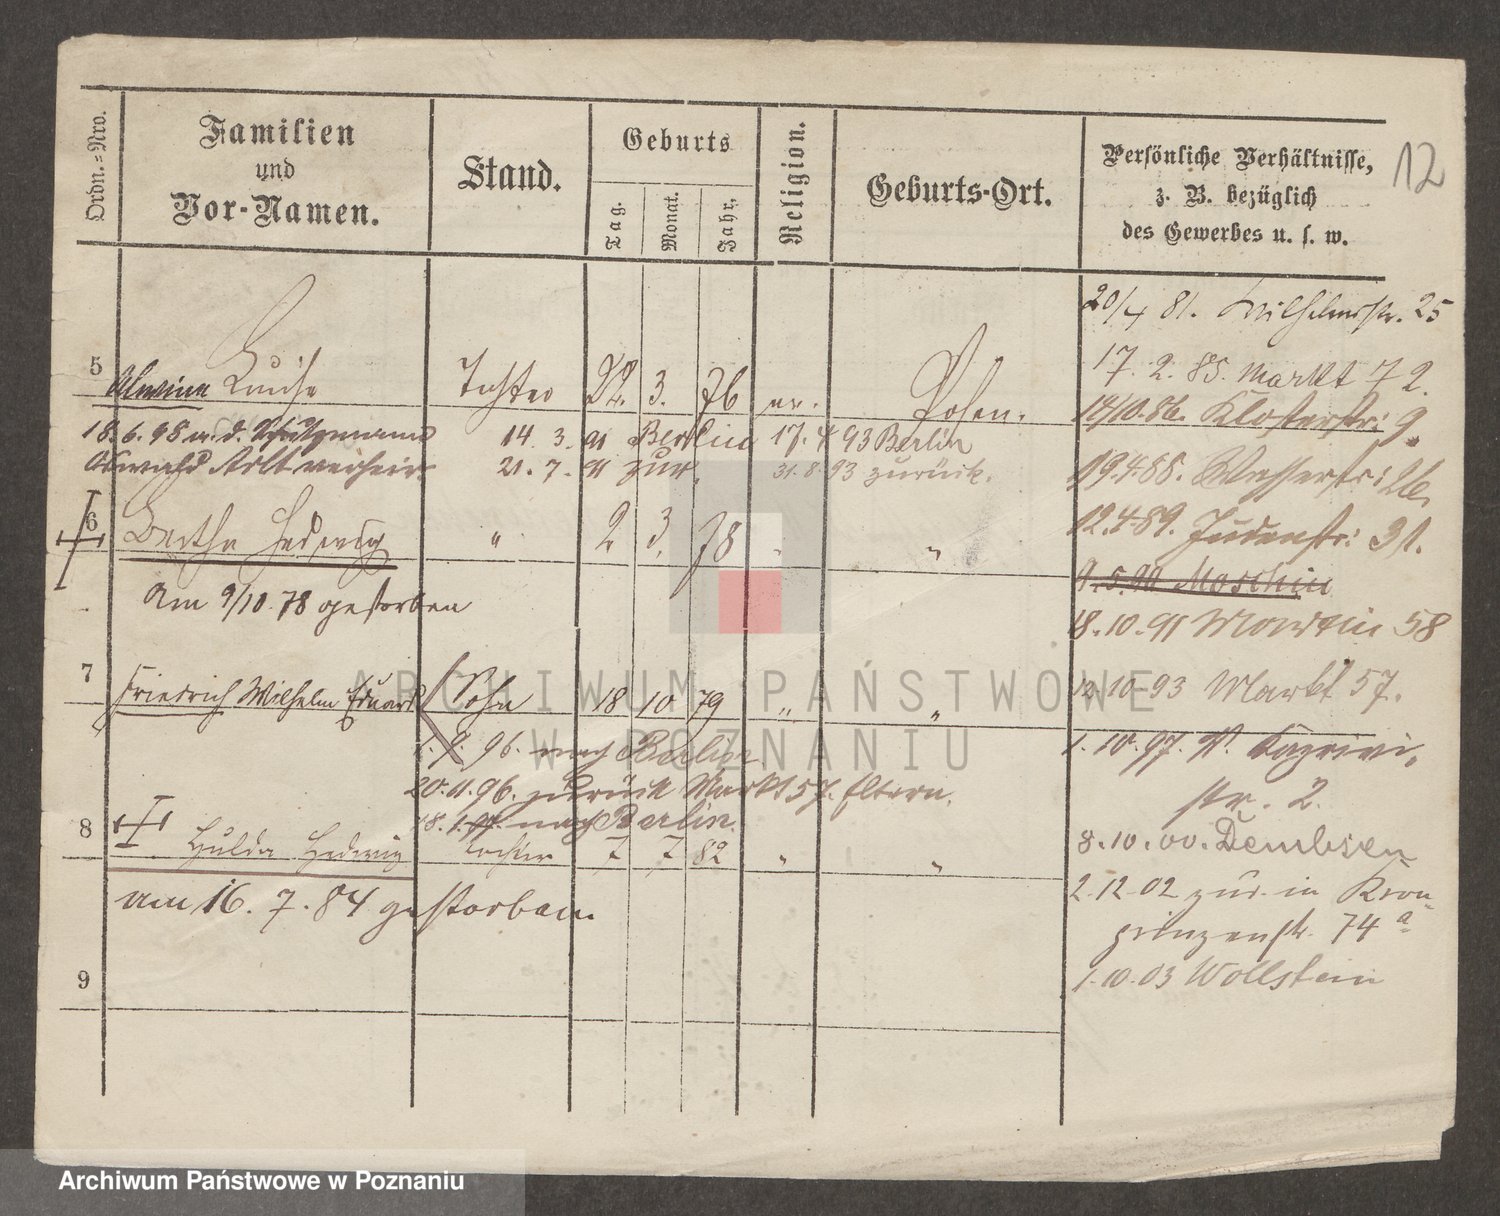 Ordn.=Nro.
Familien
und
Vor-Namen.
Stand.
Geburts
Tag.
Monat.
Jahr.
Religion.
Geburts-Ort.
Persönliche Verhältnisse,
z. B. bezüglich
des Gewerbes u. s. w.
12
20/4 81. Wilhelmstr. 25
17. 2. 85. Markt 72.
5 Alwine Luise Tochter 22. 3. 76 ev. Posen.
14/10.86. Klosterstr: 9.
18. 6. 98 m. d. Schutzmann 14. 3. 91 Berlin 17. 4 93 Berlin
Oswald Arlt verheir. 21. 7. 91 zur. 31. 8. 93 zurück.
19.4.88. Wasserstr: 26.
6 Bertha Hedwig " 2 3. 78 " "
12.4.89. Judenstr: 31.
9.5.90 Moschin
Am 9/10.78 gestorben
18.10.91 Martin 58
7 Friedrich Wilhelm Eduard Sohn 18 10 79 " "
12.10.93 Markt 57.
1. 9. 96. nach Berlin
1.10.97. V. Kaprivi-
str. 2.
20.11.96. zurück Markt 57. Eltern.
18. 1. 97. nach Berlin.
8 Hulda Hedwig Tochter 7 7 82 " "
8.10.00. Dembsen
am 16. 7. 84 gestorben
2.12.02 zur. in Kron-
prinzenstr. 74 a.
1.10.03 Wollstein
9
ARCHIWUM PAŃSTWOWE
W POZNANIU
Archiwum Państwowe w Poznaniu